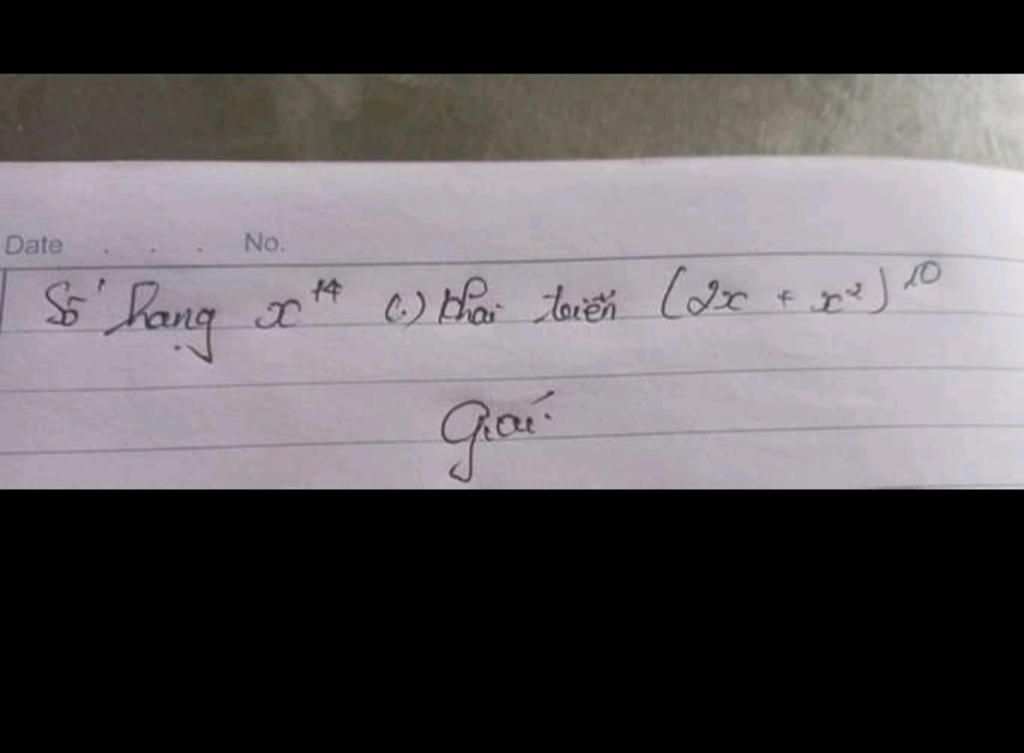 Date . . . No.
Số hạng x¹⁴ (.) khai triển (2x + x²)¹⁰
Giải